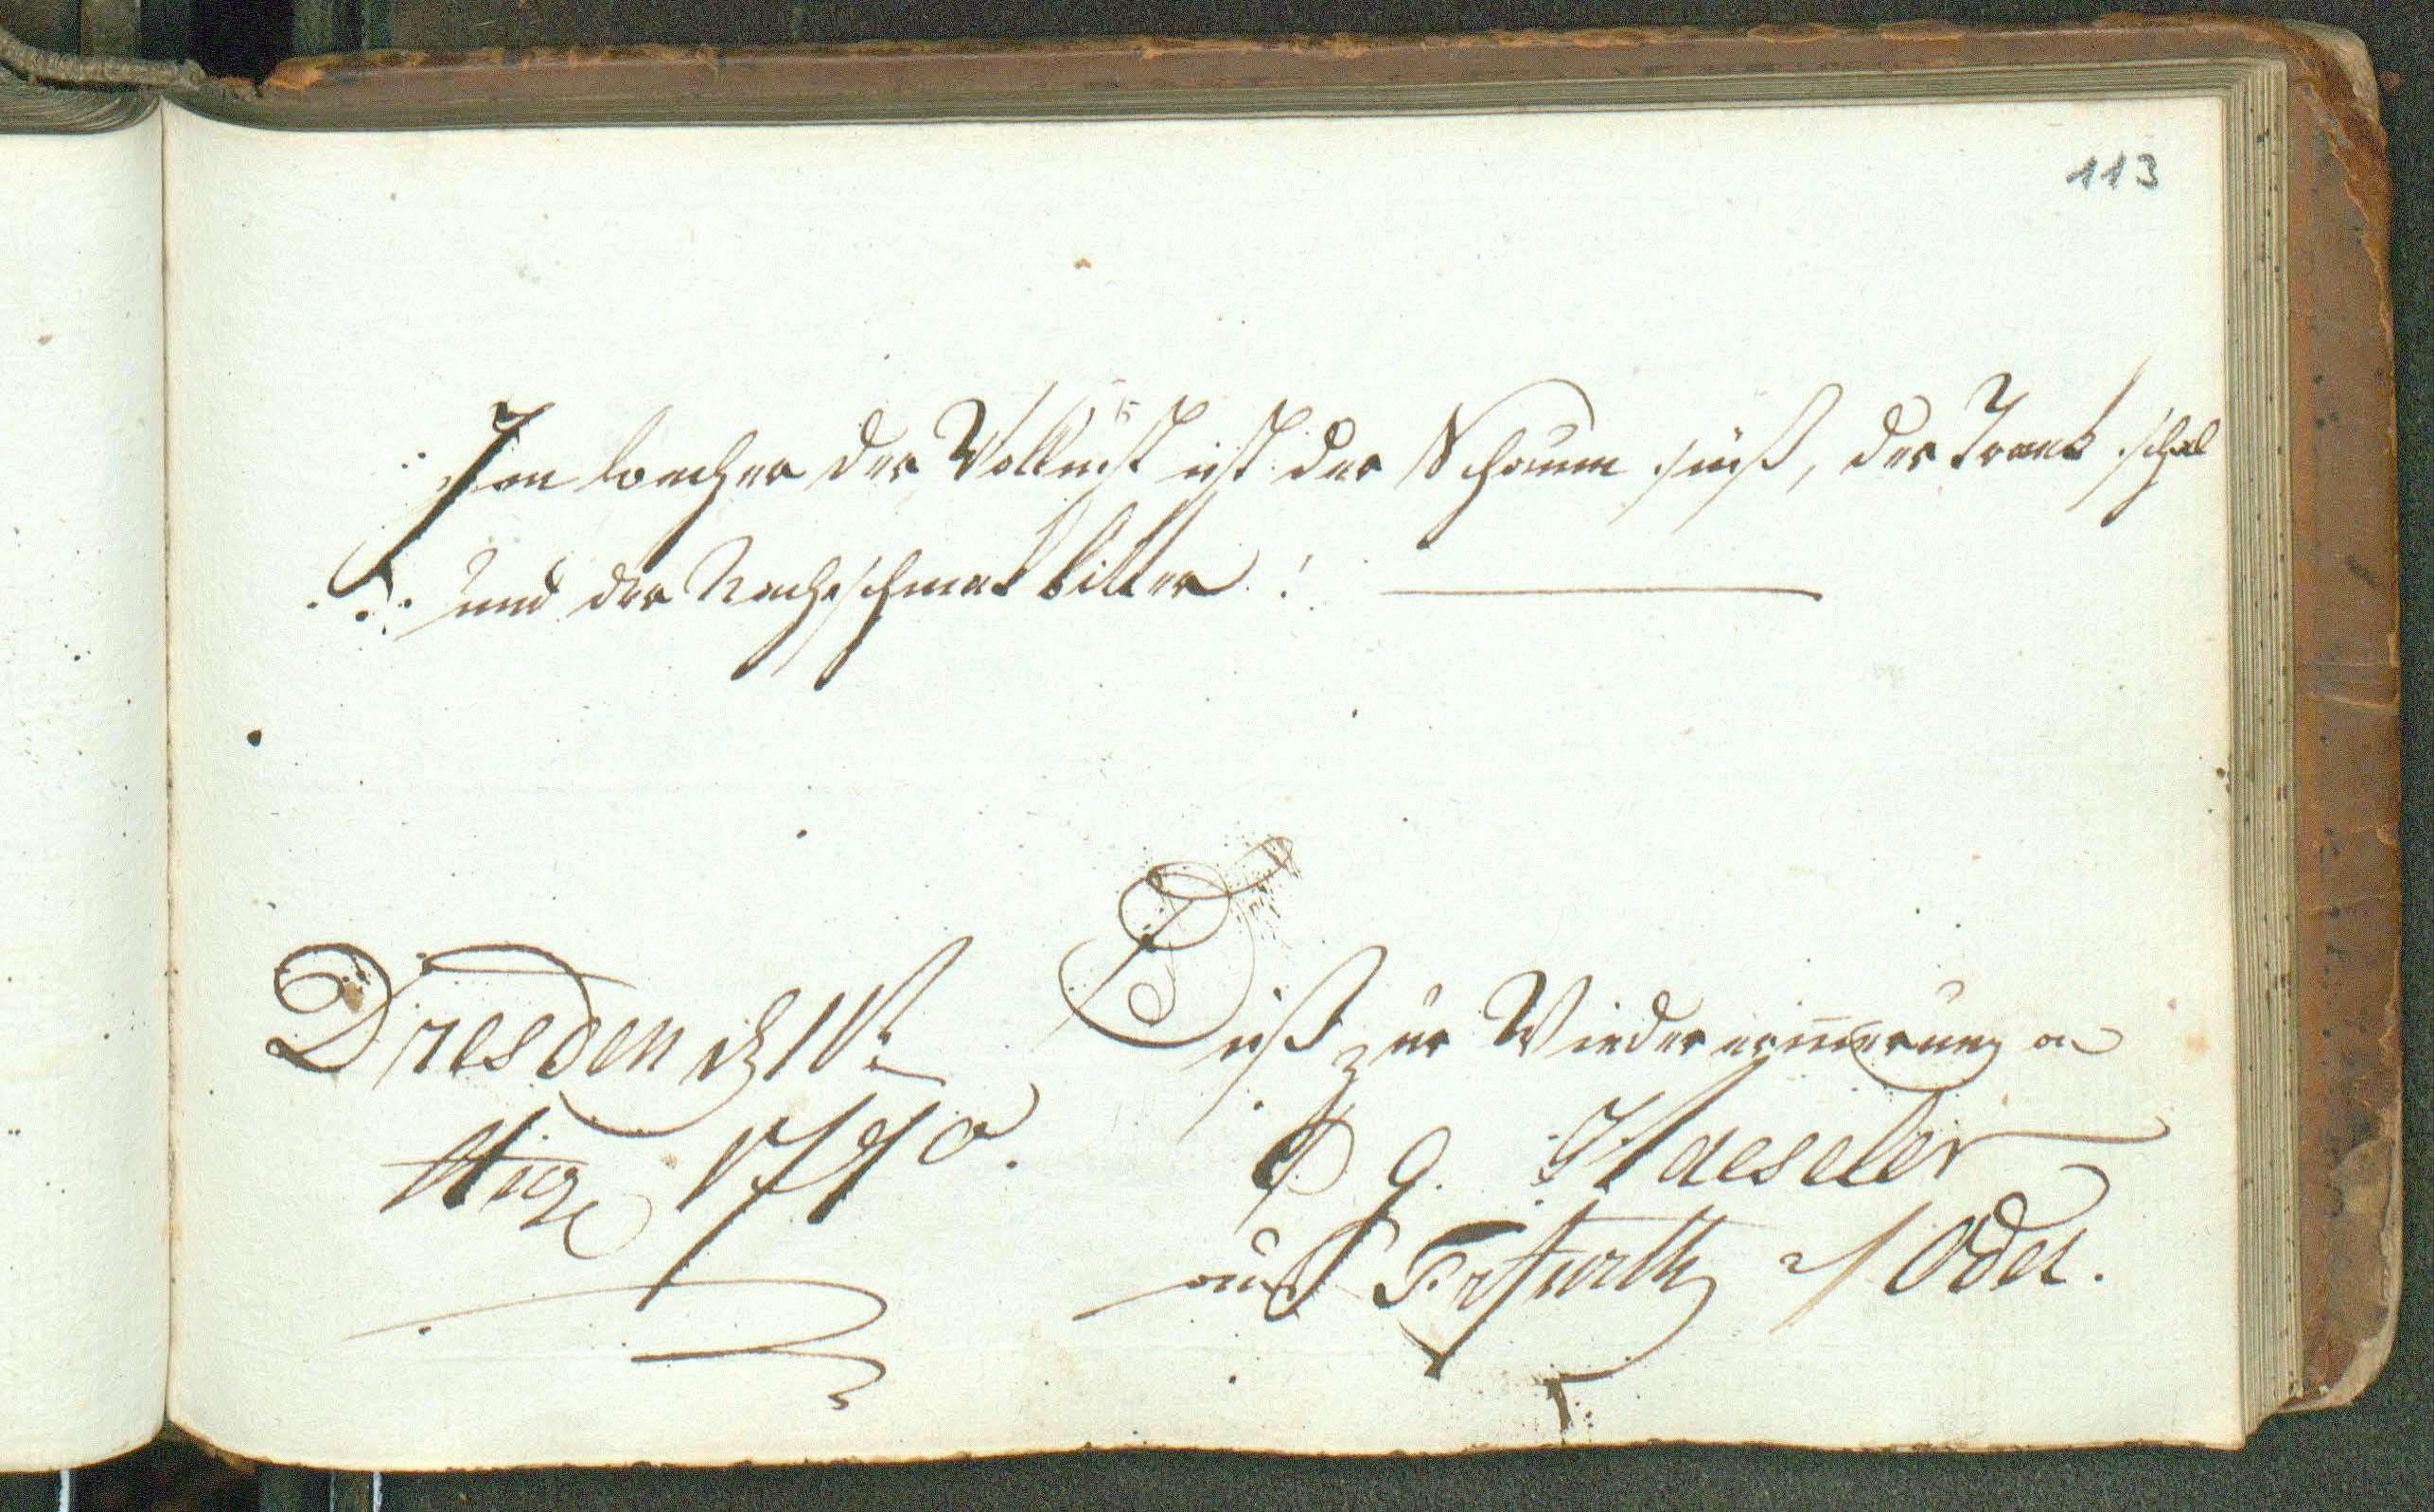 113
Im becher der Wollust ist der Schaum süß, der Trank schal
und der Nachschmak bitter!
Dresden d 1st
Aug 1790.
Dieß zur Wiedererinnerung an
Haeseler
aus Erfurth